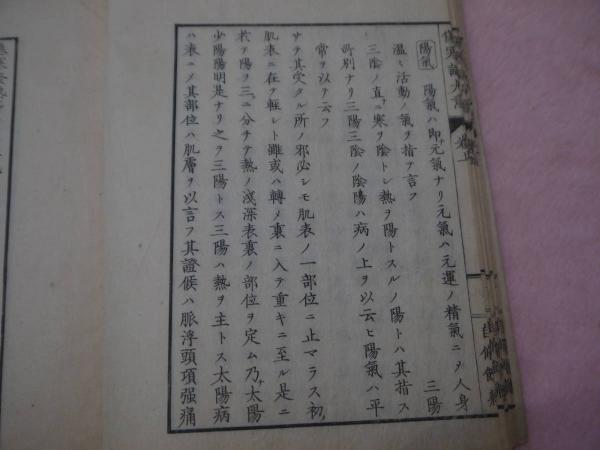 陽氣　陽氣ハ即チ元氣ナリ元氣ハ元運ノ精氣ニメ人身
溫ミ活動ノ氣ヲ指テ言フ　三陽
三陰ノ直ニ寒ヲ陰トシ熱ヲ陽トスルノ陽トハ其指ス
所別ナリ三陽三陰ノ陰陽ハ病ノ上ヲ以云ヒ陽氣ハ平
常ヲ以テ云フ
サテ其受タル所ノ邪必シモ肌表ノ一部位ニ止マラス初
肌表ニ在テ輕レト雖或ハ轉メ裏ニ入テ重キニ至ル是ニ
於テ陽ヲ三ニ分チテ熱ノ淺深表裏ノ部位ヲ定ム乃チ太陽
少陽陽明是ナリ之ヲ三陽トス三陽ハ熱ヲ主トス太陽病
ハ表ニメ其部位ハ肌膚ヲ以言フ其證候ハ脈浮頭項强痛